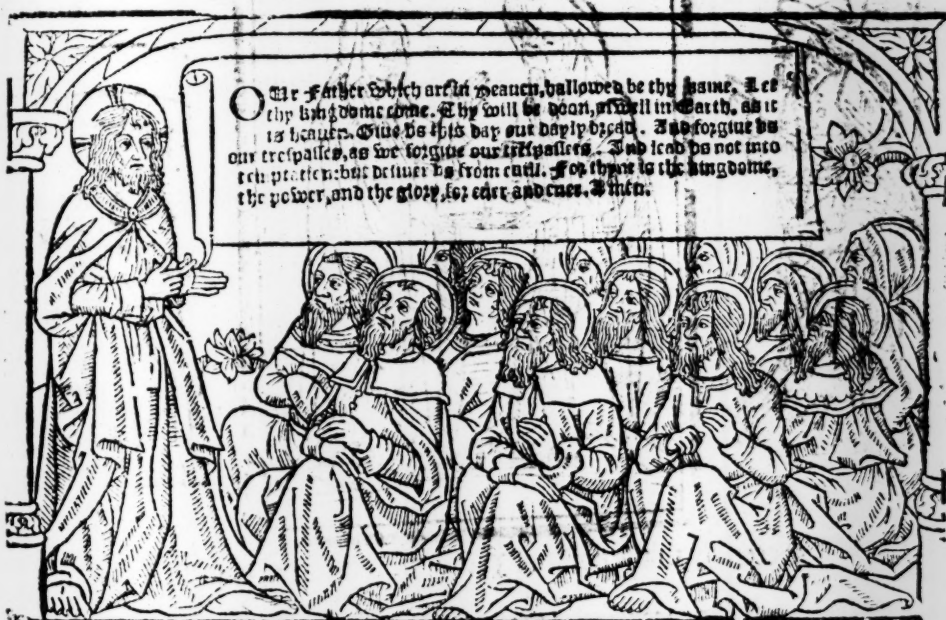 OUr Father which art in Heauen, hallowed be thy name. Let
thy kingdome come. Thy will be doon, as well in Earth, as it
is heauen. Giue vs this day our dayly bread. And forgiue vs
our trespasses, as we forgiue our trespassers. And lead vs not into
temptation: but deliuer vs from euill. For thyne is the kingdome,
the power, and the glory, for euer and euer. Amen.